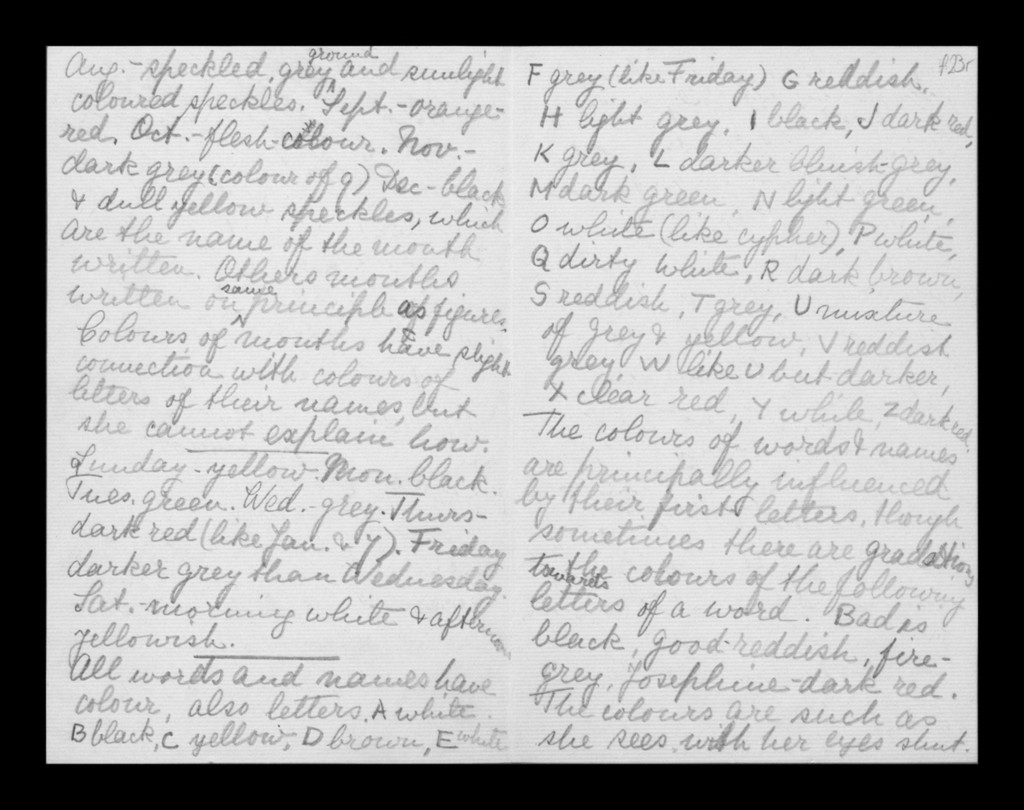 Aug.- speckled, grey ground and sunlight
coloured speckles. Sept.- orange-
red. Oct.- flesh-colour. Nov.-
dark grey (colour of 9) Dec- black
& dull yellow speckles, which
are the name of the month
written. Others months
written on same principle as figures.
Colours of months have slight
connection with colours of
letters of their names, but
she cannot explain how.
Sunday- yellow. Mon. black.
Tues. green. Wed.- grey. Thurs-
dark red (like Jan. & 7). Friday
darker grey than Wednesday.
Sat.- morning white & afternoon
yellowish.
All words and names have
colour, also letters. A white.
B black, C yellow, D brown, E white
F grey (like Friday) G reddish.
H light grey, I black, J dark red,
K grey, L darker bluish-grey,
M dark green, N light green,
O white (like cypher), P white,
Q dirty white, R dark brown,
S reddish, T grey, U mixture
of grey & yellow, V reddish
grey, W like U but darker,
X clear red, Y white, Z dark red.
The colours of words & names
are principally influenced
by their first letters, though
sometimes there are gradations
towards the colours of the following
letters of a word. Bad is
black, good-reddish, fire-
grey, Josephine-dark red.
The colours are such as
she sees with her eyes shut.